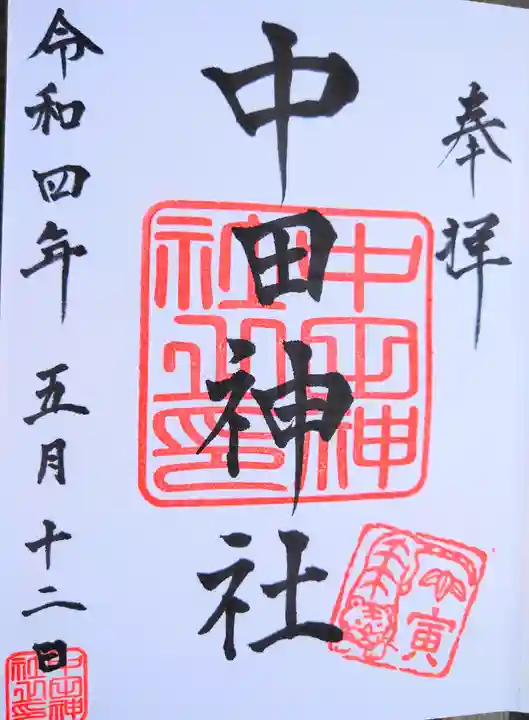 奉拝
中田神社
中田神社之印
令和四年 五月十二日
寅
中田神社之印